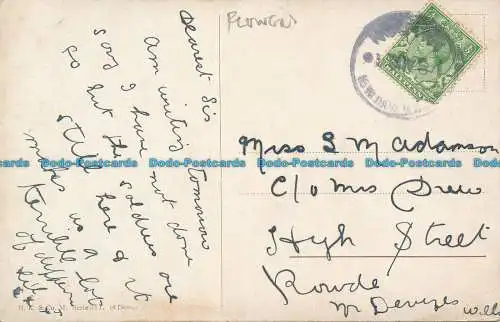 Flowers
Dearest Sis
am writing tomorrow
sorry I have not done
so but the soldiers are
still here & it
makes us a lot
Terrible
Miss S. M Adamson
C/o Mrs Drew
High Street
Rowde
Nr Devizes
Wilts
Dodo-Postcards Dodo-Postcards Dodo-Postcards Dodo-Postcards Dodo-Postcards